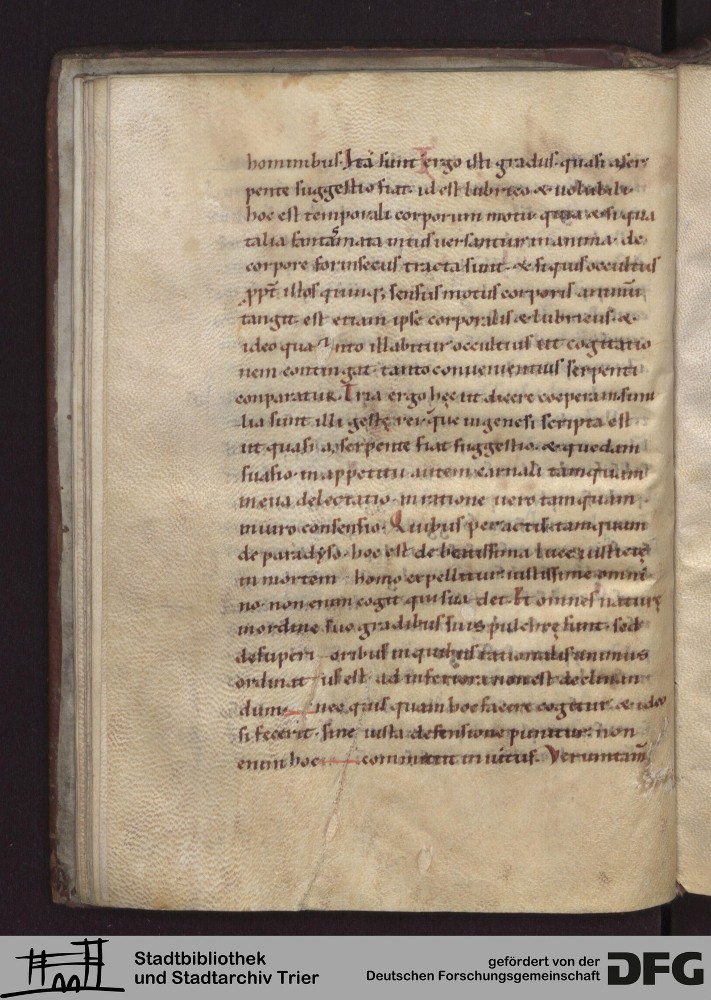 hominibus. Ita sunt ergo isti gradus. quasi aser
pente suggestio fiat. id est lubrico & uolubili.
hoc est temporali corporum motu. quia & si qua
talia fantasmata intus uersantur in anima. de
corpore forinsecus tracta sunt. & si quis occultus
ppt̄ illos quinq; sensus motus corporis animū
tangit. est etiam ipse corporalis & lubricus. &
ideo qua nto illabitur occultius ut cogitatio
nem contingat. tanto conuenientius serpenti
conparatur. Tria ergo hęc ut dicere coeperam simi
lia sunt illi gestę rei quę in genesi scripta est
ut quasi a serpente fiat suggestio. & quedam
suasio. in appetitu autem carnali tamquam
in eua delectatio. in ratione uero tamquam
in uiro consensio. Quibus peractis. tamquam
de paradyso. hoc est de beatissima luce iustitię
in mortem homo expellitur iustissime omni
no. non enim cogit qui sua det. Et omnes naturę
in ordine suo gradibus suis pulchrę sunt. sed
de superi oribus in quibus rationalis animus
ordinat us est ad inferiora non est declinan
dum. nec quisquam hoc facere cogitur. & ideo
si fecerit. sine iusta defensione punitur. non
enim hoc committit inuitus. Verumtam̄
Stadtbibliothek
und Stadtarchiv Trier
gefördert von der
Deutschen Forschungsgemeinschaft
DFG